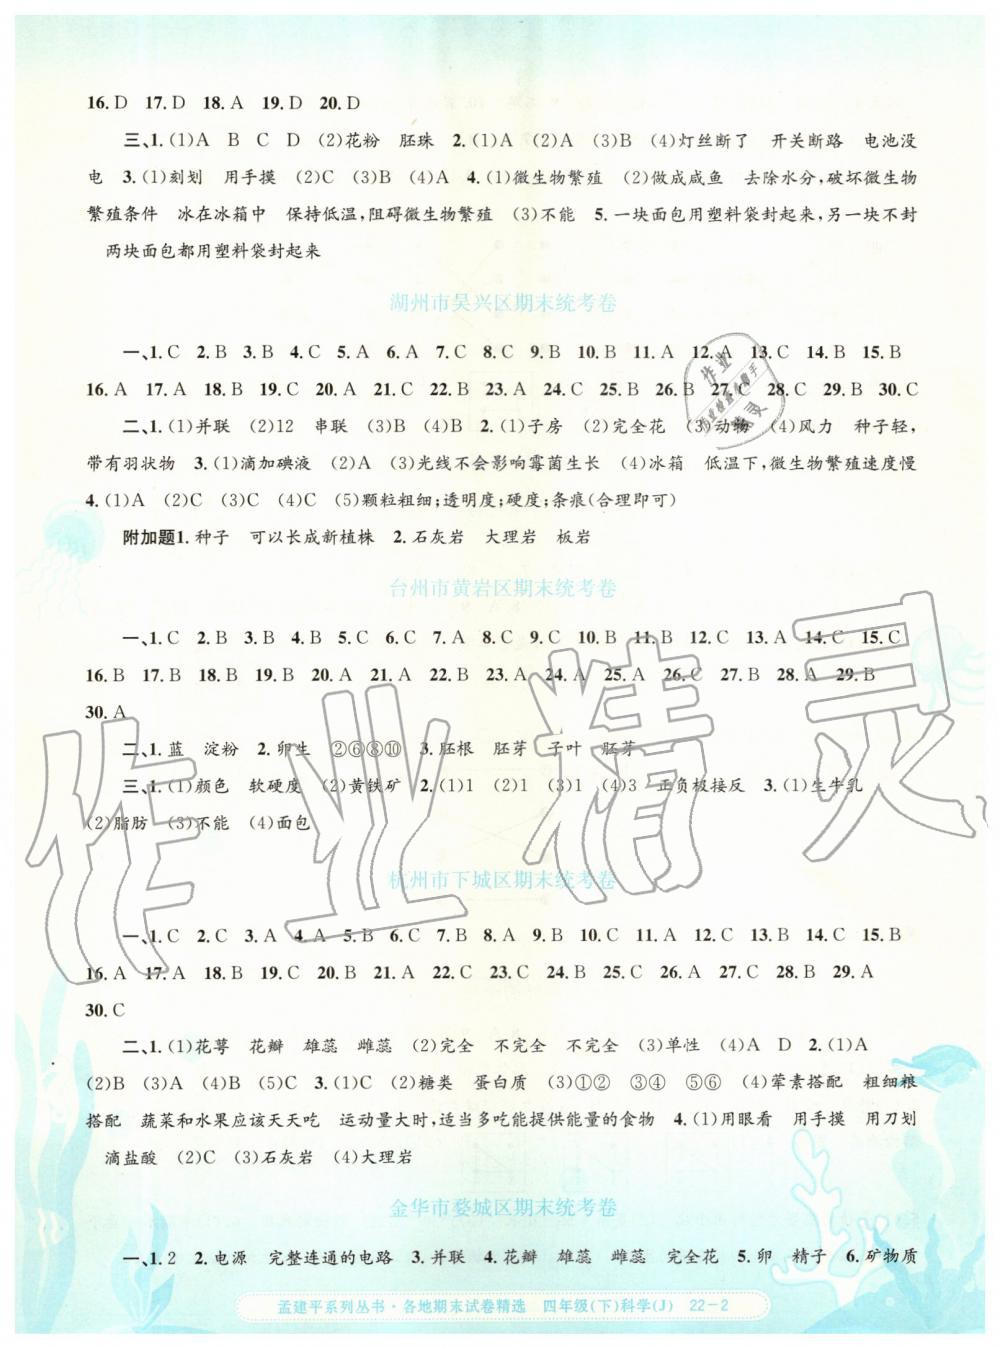 16. D 17. D 18. A 19. D 20. D
三、1. (1)A B C D (2)花粉 胚珠 2. (1)A (2)A (3)B (4)灯丝断了 开关断路 电池没
电 3. (1)刻划 用手摸 (2)C (3)B (4)A 4. (1)微生物繁殖 (2)做成咸鱼 去除水分,破坏微生物
繁殖条件 冰在冰箱中 保持低温,阻碍微生物繁殖 (3)不能 5. 一块面包用塑料袋封起来,另一块不封
两块面包都用塑料袋封起来
湖州市吴兴区期末统考卷
一、1. C 2. B 3. B 4. C 5. A 6. A 7. C 8. C 9. B 10. B 11. A 12. A 13. C 14. B 15. B
16. A 17. A 18. B 19. C 20. A 21. C 22. B 23. A 24. C 25. B 26. B 27. C 28. C 29. B 30. C
二、1. (1)并联 (2)12 串联 (3)B (4)B 2. (1)子房 (2)完全花 (3)动物 (4)风力 种子轻,
带有羽状物 3. (1)滴加碘液 (2)A (3)光线不会影响霉菌生长 (4)冰箱 低温下,微生物繁殖速度慢
4. (1)A (2)C (3)C (4)C (5)颗粒粗细;透明度;硬度;条痕(合理即可)
附加题1. 种子 可以长成新植株 2. 石灰岩 大理岩 板岩
台州市黄岩区期末统考卷
一、1. C 2. B 3. B 4. B 5. C 6. C 7. A 8. C 9. C 10. B 11. B 12. C 13. A 14. C 15. C
16. B 17. B 18. B 19. C 20. A 21. A 22. B 23. B 24. A 25. A 26. C 27. B 28. A 29. B
30. A
二、1. 蓝 淀粉 2. 卵生 ②⑥⑧⑩ 3. 胚根 胚芽 子叶 胚芽
三、1. (1)颜色 软硬度 (2)黄铁矿 2. (1)1 (2)1 (3)1 (4)3 正负极接反 3. (1)生牛乳
(2)脂肪 (3)不能 (4)面包
杭州市下城区期末统考卷
一、1. C 2. C 3. A 4. A 5. B 6. C 7. B 8. A 9. B 10. C 11. A 12. B 13. B 14. C 15. B
16. A 17. A 18. B 19. C 20. B 21. A 22. C 23. C 24. B 25. C 26. A 27. C 28. B 29. A
30. C
二、1. (1)花萼 花瓣 雄蕊 雌蕊 (2)完全 不完全 不完全 (3)单性 (4)A D 2. (1)A
(2)B (3)A (4)B (5)C 3. (1)B (2)糖类 蛋白质 (3)①② ③④ ⑤⑥ (4)荤素搭配 粗细粮
搭配 蔬菜和水果应该天天吃 运动量大时,适当多吃能提供能量的食物 4. (1)用眼看 用手摸 用刀划
滴盐酸 (2)C (3)石灰岩 (4)大理岩
金华市婺城区期末统考卷
一、1. 2 2. 电源 完整连通的电路 3. 并联 4. 花瓣 雄蕊 雌蕊 完全花 5. 卵 精子 6. 矿物质
孟建平系列丛书·各地期末试卷精选 四年级(下)科学(J) 22-2
作业精灵